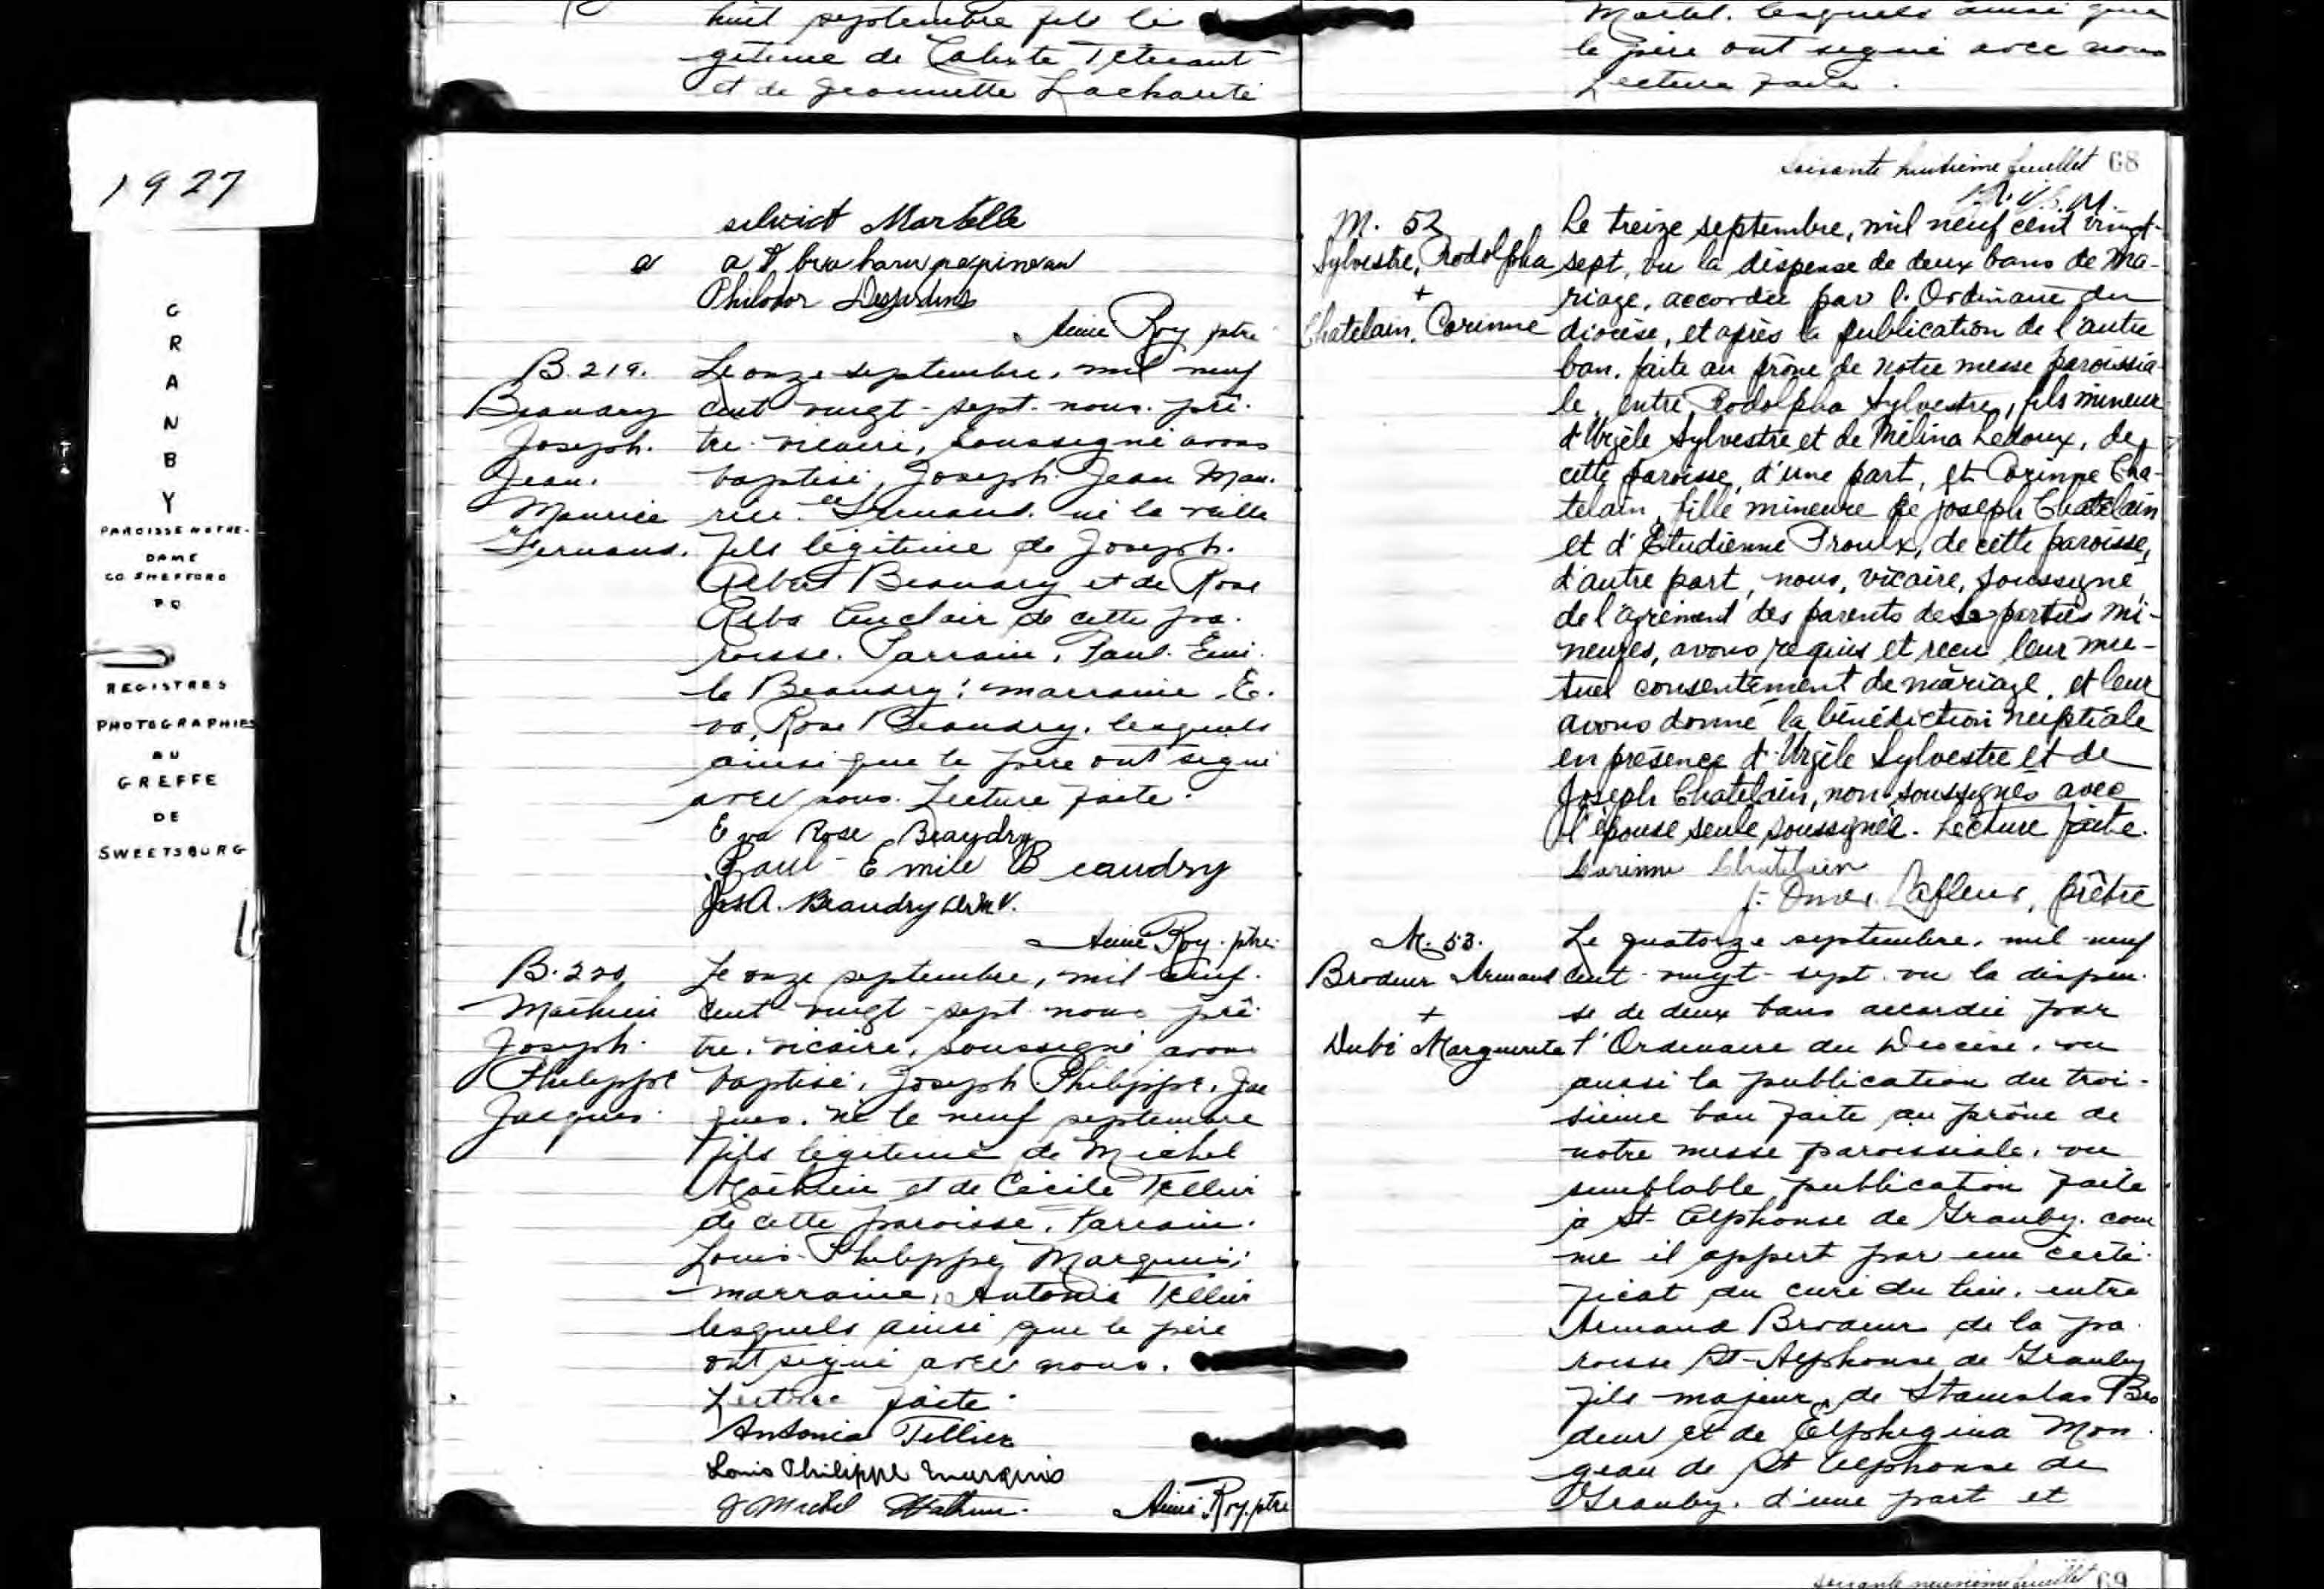 1927
G
R
A
N
B
Y
PAROISSE NOTRE-
DAME
CO. SHEFFORD
P Q
REGISTRES
PHOTOGRAPHIES
AU
GREFFE
DE
SWEETSBURG
huit septembre fils lé
gitime de Tétreault
et de Jeannette Lacharité
Martelle
Philodor Desjardins
Aimé Roy ptre
B. 219.
Beaudry
Joseph.
Jean.
Maurice
Fernand.
Le onze septembre, mil neuf
cent vingt-sept. nous. prê-
tre. vicaire, soussigné avons
baptisé, Joseph. Jean Mau-
rice. Fernand. né la veille
fils légitime de Joseph.
Albert Beaudry et de Rose
Alba Auclair de cette pa-
roisse. Parrain, Paul. Emi-
le Beaudry; marraine, E-
va, Rose Beaudry. lesquels
ainsi que le père ont signé
avec nous. Lecture faite.
Eva Rose Beaudry
Paul-Emile Beaudry
Jos A. Beaudry
Aimé Roy. ptre.
B. 220
Mathieu
Joseph.
Philippe
Jacques.
Le onze septembre, mil neuf.
cent vingt-sept nous prê-
tre. vicaire, soussigné avons
baptisé, Joseph Philippe, Jac
ques. né le neuf septembre
fils légitime de Michel
Mathieu et de Cécile Tellier
de cette paroisse. Parrain.
Louis-Philippe Marquis;
marraine, Antonia Tellier
lesquels ainsi que le père
ont signé avec nous.
Lecture faite.
Antonia Tellier
Louis Philippe Marquis
J Michel Mathieu.
Aimé Roy. ptre
Martel. lesquels ainsi que
le père ont signé avec nous
Lecture faite.
soixante huitième feuillet 68
M. 52
Sylvestre, Rodolpha
+
Chatelain, Corinne
Le treize septembre, mil neuf cent vingt-
sept, vu la dispense de deux bans de ma-
riage, accordée par l'Ordinaire du
diocèse, et après la publication de l'autre
ban, faite au prône de notre messe paroissia-
le, entre Rodolpha Sylvestre, fils mineur
d'Urgèle Sylvestre et de Mélina Ledoux, de
cette paroisse, d'une part, et Corinne Cha-
telain, fille mineure de Joseph Chatelain
et d'Etudienne Proulx, de cette paroisse,
d'autre part, nous, vicaire, soussigné,
de l'agrément des parents des parties mi-
neures, avons requis et reçu leur mu-
tuel consentement de mariage, et leur
avons donné la bénédiction nuptiale
en présence d'Urgèle Sylvestre et de
Joseph Chatelain, non soussignés avec
l'épouse seule soussignée. Lecture faite.
Corinne Chatelain
J. Omer Lafleur, prêtre
M. 53.
Brodeur Armand
+
Dubé Marguerite
Le quatorze septembre, mil neuf
cent-vingt-sept. vu la dispen-
se de deux bans accordée par
l'Ordinaire du Diocèse. vu
aussi la publication du troi-
sième ban faite au prône de
notre messe paroissiale, vu
semblable publication faite
à St-Alphonse de Granby. com
me il appert par un certi-
ficat du curé du lieu, entre
Armand Brodeur de la pa-
roisse St-Alphonse de Granby
fils majeur de Stanislas Bro
deur et de Elphegina Mon-
geau de St Alphonse de
Granby. d'une part et
soixante neuvième feuillet 69